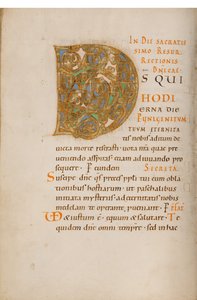 IN DIE SACRATIS
SIMO RESUR
RECTIONIS
DNICAE
DS QUI
HODI
ERNA DIE
P UNIGENITUM
TUUM ETERNITA
tis nobis aditum de
victa morte reserasti . vota nostra quae pre
veniendo aspiras . etiam adiuvando pro
sequere . P eundem SECRETA
Suscipe dne qs preces ppli tui cum obla
tionibus hostiarum . ut paschalibus
initiata mysteriis . ad eternitatis nobis
medelam te operante proficiant . P
Vere dignum & iustum e . equum & salutare . Te
quidem omni tempore . sed in hac